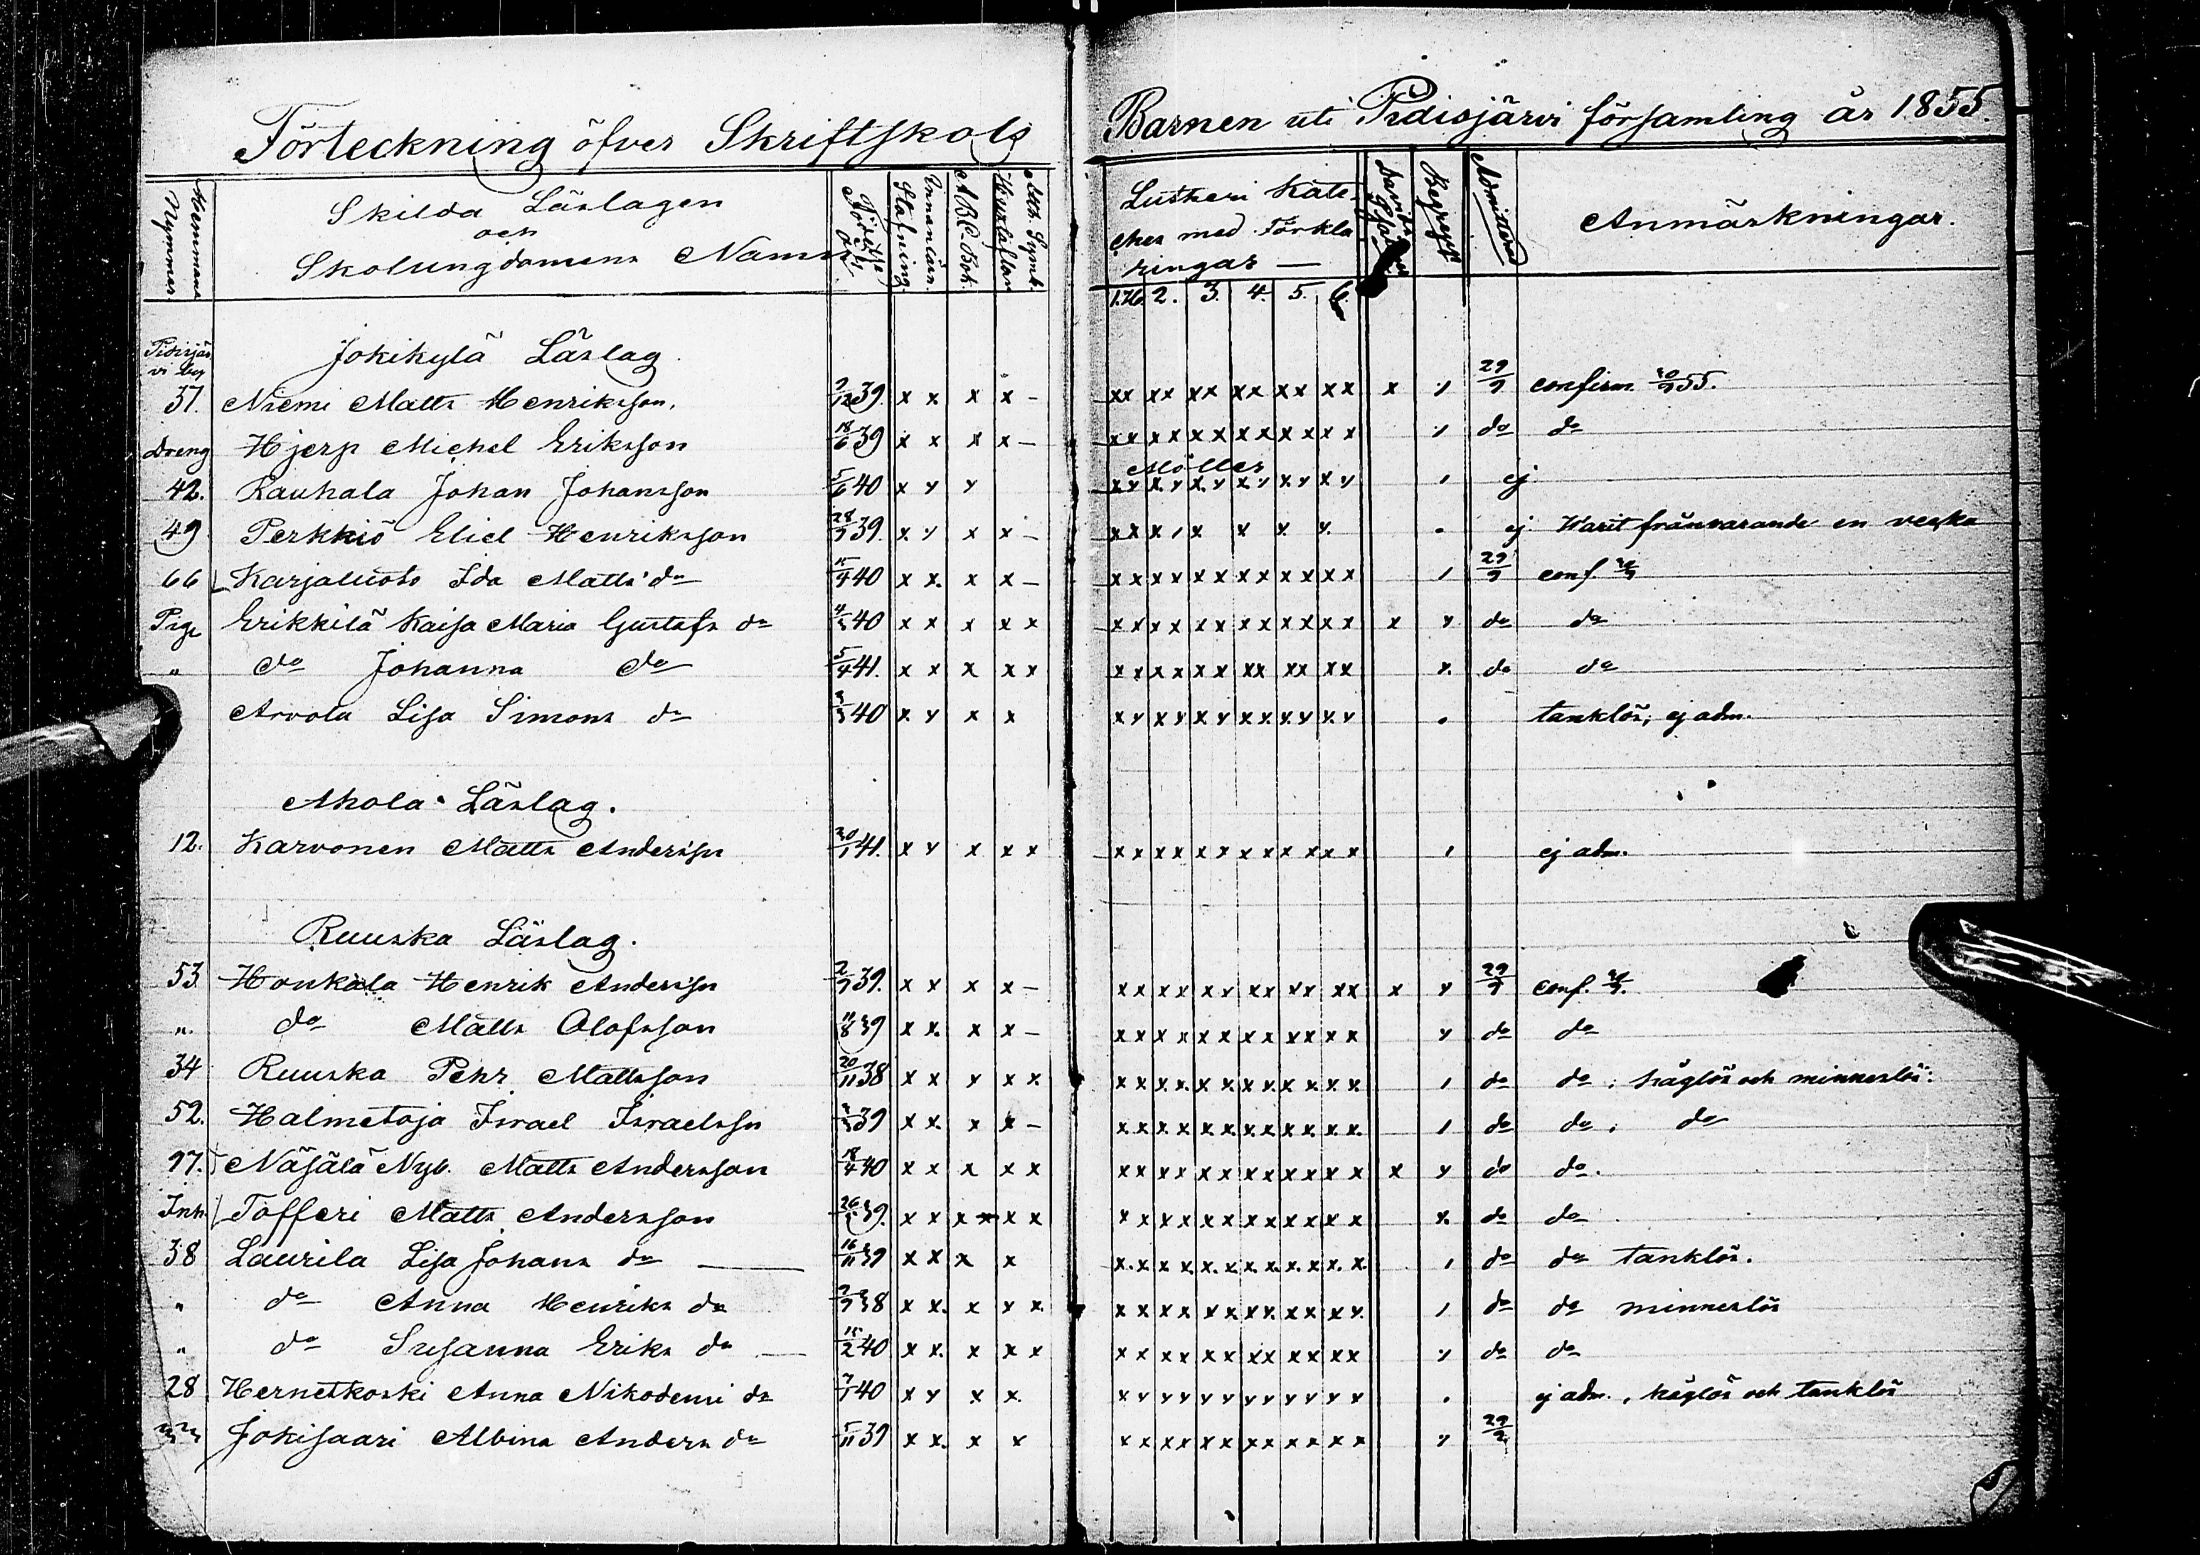 Förteckning öfver Skriftskols Barnen uti Pidisjärvi församling år 1855.
Hemmans Nummer
Skilda Läslagen
och
Skolungdomens Namn
Födelse år
Stafning
Innanläsn.
ABC-Bok.
Hustaflan
Ath. Symb.
Lutheri Kate-
ches med Förkla
ringar —
1. H. 2. 3. 4. 5. 6.
Davids Psalmer
Begrepp
Admitterad
Anmärkningar.
Pidisjär
vi by
Jokikylä Läslag.
37. Niemi Matts Henriksson. 7/12 39. x x x x – xx xx xx xx xx xx x 29/9 confirm. 30/9 55.
Dreng Hjerp Michel Eriksson 18/6 39 x x x x – xx xx xx xx xx xx do do
Möller
42. Rauhala Johan Johansson 5/6 40 x y y xy xy xy xy xy xy ej
49 Perkkiö Eliel Henriksson 28/9 39. x y x x – ej Warit frånvarande en vecka
66 Karjaluoto Ida Matts dr 15/4 40 x x. x x – xx xx xx xx xx xx 29/9 conf. 30/9
Erikkilä Kaisa Maria Gustafs dr 40 x x x x x xx xx xx xx xx xx x y do do
" do Johanna do 5/4 41. x x x x x xx xx xx xx xx xx x. do do
Arvola Lisa Simons dr 40 x y x x xy xy xy xy xy xy tanklös, ej adm.
Ahola Läslag.
12. Karvonen Matts Andersson 30/1 41. x y x x x xx xx xx xx xx xx ej adm.
Ruuska Läslag.
53. Honkala Henrik Andersson 2/9 39. x y x x – xx xx xy xx yy xx x y 29/9 conf. 30/9.
". do Matts Olofsson 11/8 39 x x. x x – xx xx xx xx xx xx y do do
34 Ruuska Pehr Mattsson 20/11 38 x x y x x. xx xx xx xx xx xx do do; håglös och minneslös.
52. Halmetoja Israel Israelsson 39 x x. x x – xx xx xx xx xx xx do do; do
97. Näsälä Nyb. Matts Andersson 18/4 40 x x x x x xx xx xx xx xx xx x y do do.
Inh. Tofferi Matts Andersson 39. x x x x x x xx xx xx xx xx xx x. do do
38 Laurila Lisa Johans dr 16/11 39 x x x x xx xx xx xx xx xx do do tanklös.
" do Anna Henriks dr 38 x x. x y x. xx xx xx xx xx xy do do minneslös
" do Susanna Eriks dr 15/2 40 x x. x x x xx xx xx xx xx xx do do
28 Hernetkoski Anna Nikodemi dr 7/1 40 x y x x. xy yy yy yy yy yy ej adm., håglös och tanklös
Jokisaari Albina Anders dr 5/11 39 x x. x x xx xx xx xx xx xx 29/9